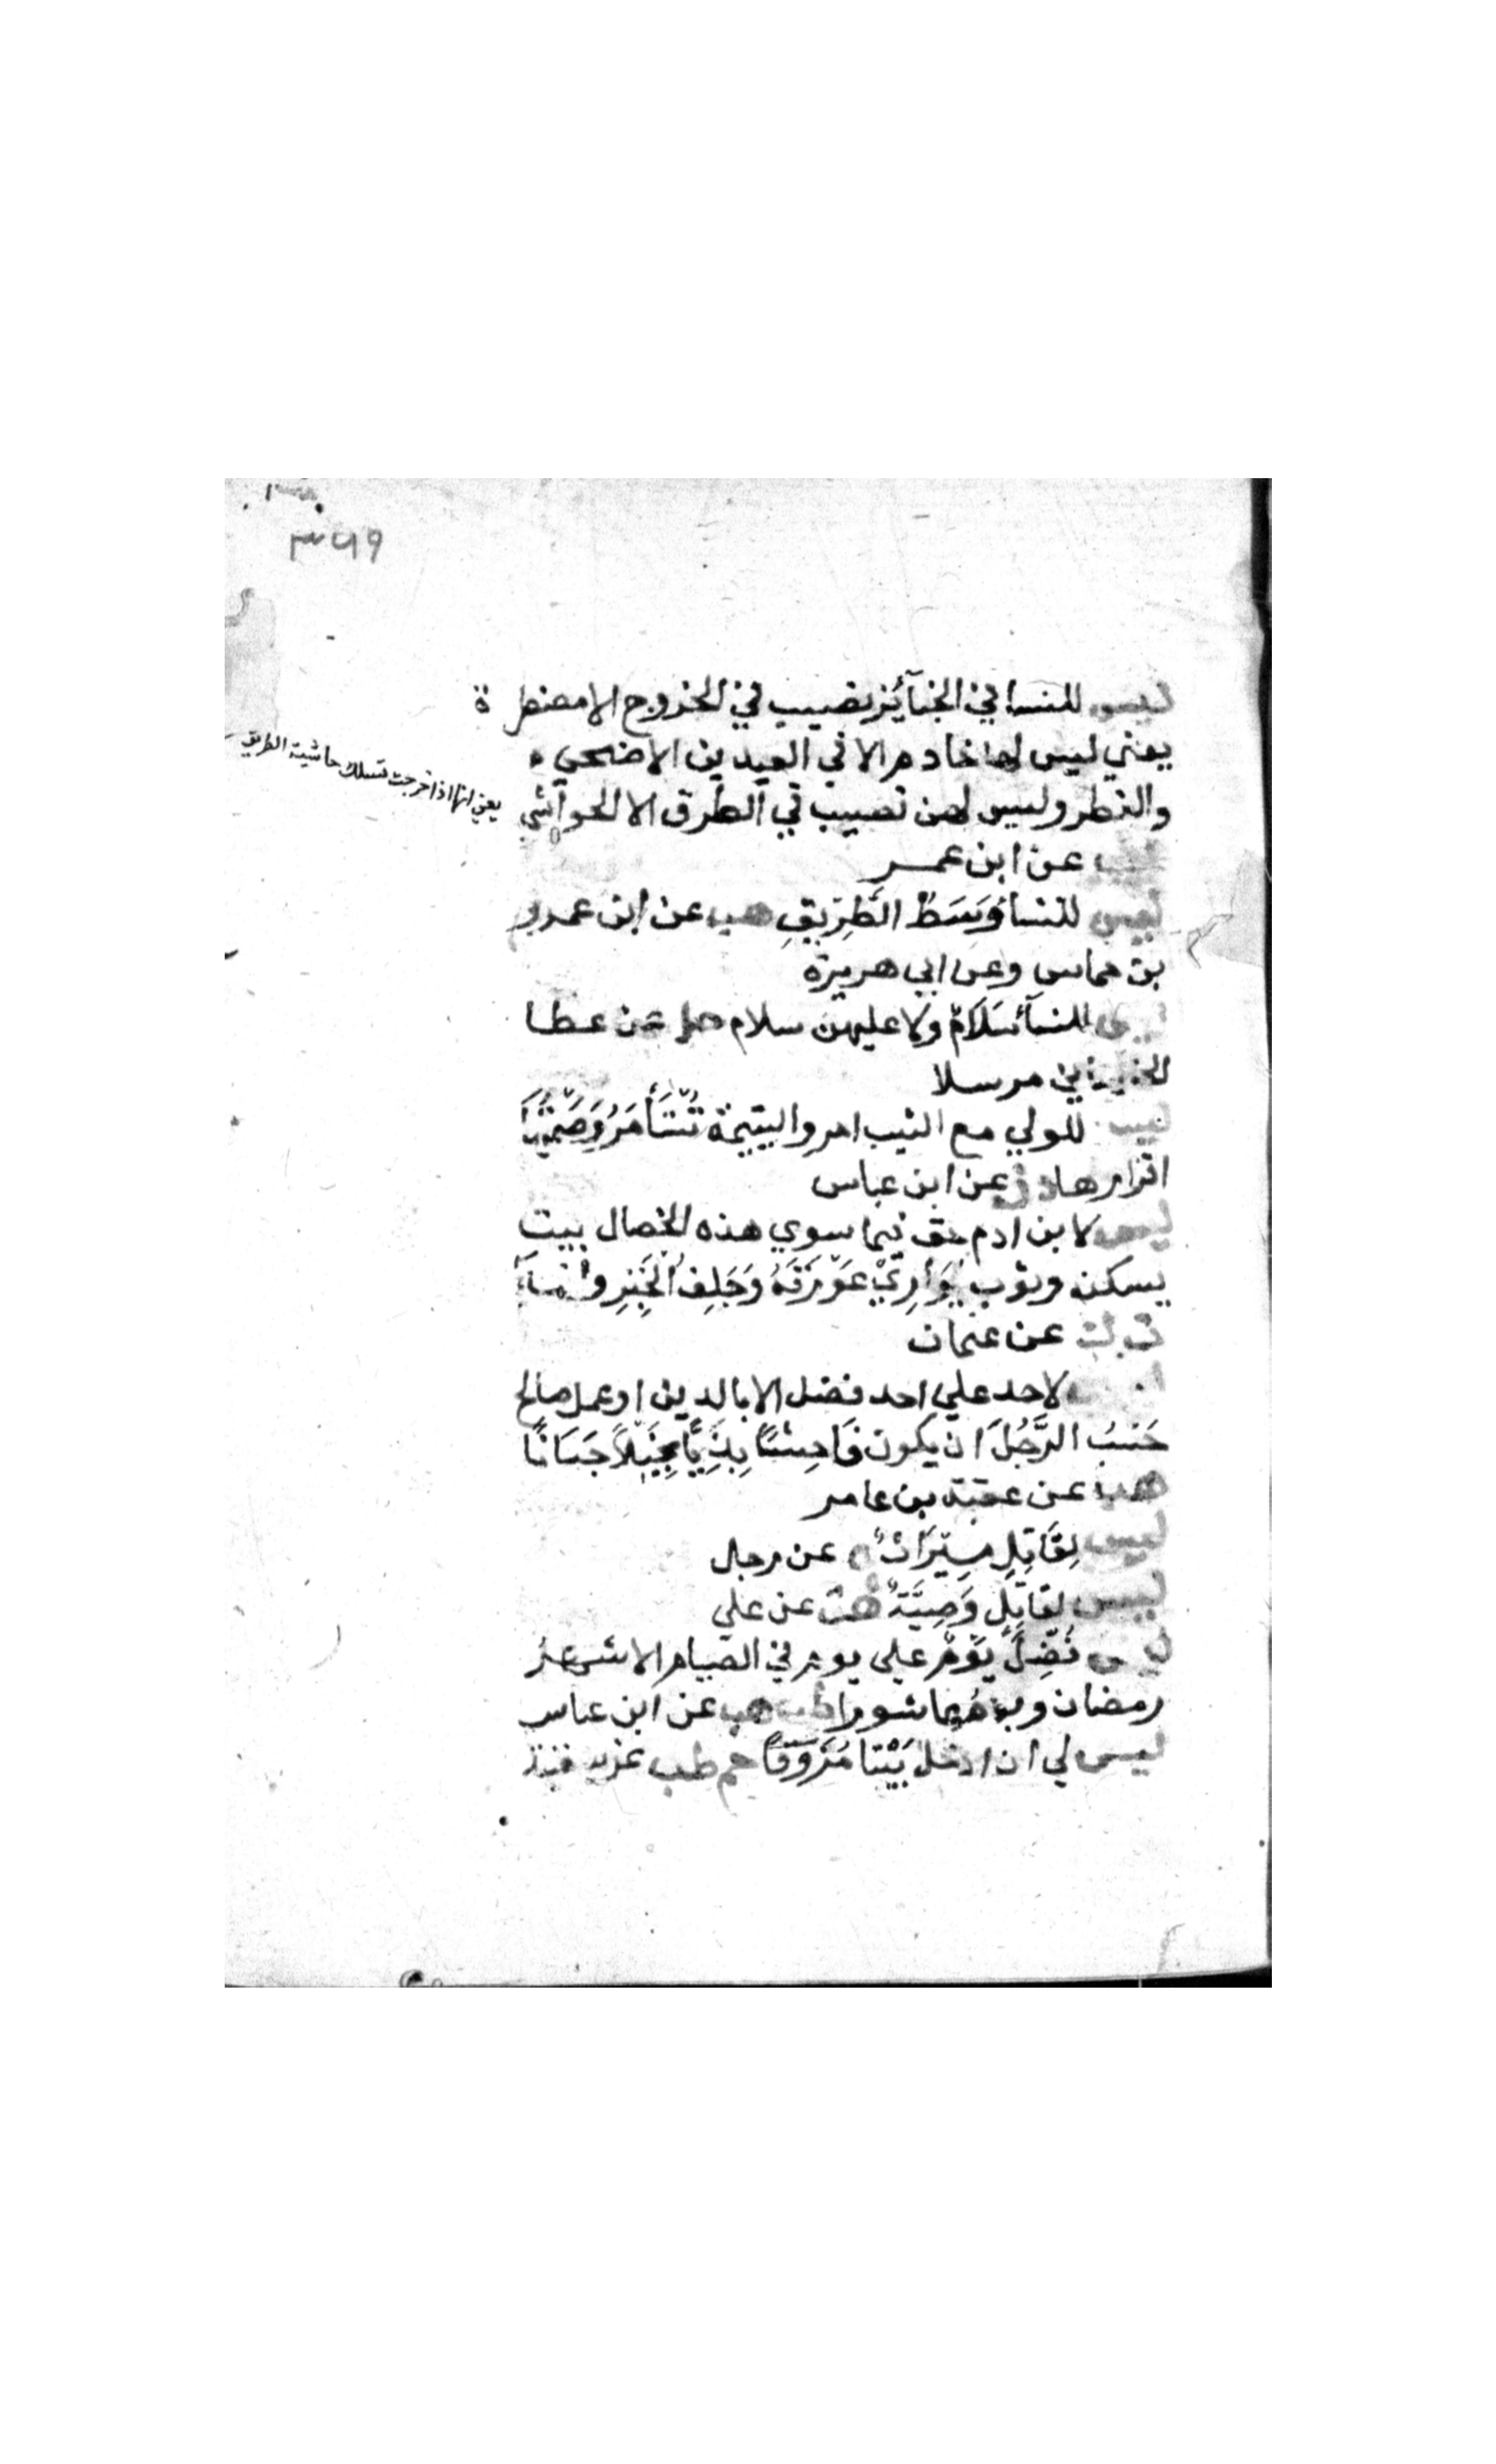 ٣٦٩
ليس للنسا في الجنآئز نصيب في الخروج الا مضطرة
يعني ليس لها خادم الا في العيدين الاضحي
والفطر وليس لهن نصيب في الطرق الا الحواشي
يعني انها اذا خرجت تسلك حاشية الطريق
طب عن ابن عمر
ليس للنسا وَسَطُ الطَّرِيقِ هب عن ابن عمرو
بن حماس وعن ابي هريرة
ليس للنسآ سَلَامٌ ولا عليهن سلام حل عن عطا
الخراساني مرسلا
ليس للولي مع الثيب امر واليتيمة تُسْتَأْمَرُ وَصَمْتُهَا
اقرارها د ن عن ابن عباس
ليس لابن ادم حق فيما سوي هذه الخصال بيت
يسكنه وثوب يُوَارِيْ عَوْرَتَهُ وَجَلِفُ الْخُبْزِ وَالْمَآءِ
ت ك عن عثمان
ليس لاحد علي احد فضل الا بالدين او عمل صالح
حَسْبُ الرَّجُلِ ان يكون فَاحِشًا بِذَيًّا بَخِيْلًا جَبَانًا
هب عن عقبة بن عامر
ليس لِقَاتِلٍ مِيْرَاثٌ ه عن رجل
ليس لقَاتِلٍ وَصِيَّةٌ هق عن علي
ليس فُضِلَ يَوْمٌ علي يوم في الصيام الا شهر
رمضان ويومُ عاشورا طب هب عن ابن عباس
ليس لي ان ادخل بَيْتا مُزَوَّقًا حم طب عن سفينة